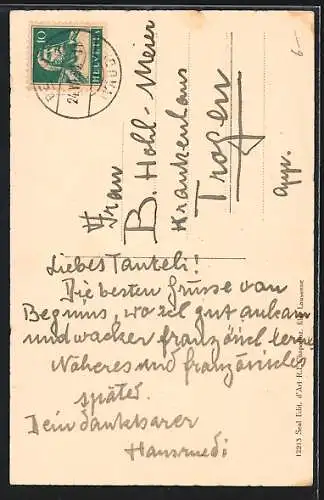 10
HELVETIA
24.VI
Frau
B. Hohl-Meier
Krankenhaus
Trogen
App.
6-
Liebes Tanteli!
Die besten Grüsse von
Begnins, wo ich gut ankam
und wacker französisch lerne.
Näheres und französisches
später.
Dein dankbarer
Hansruedi
12213 Seal Edit. d'Art Lausanne